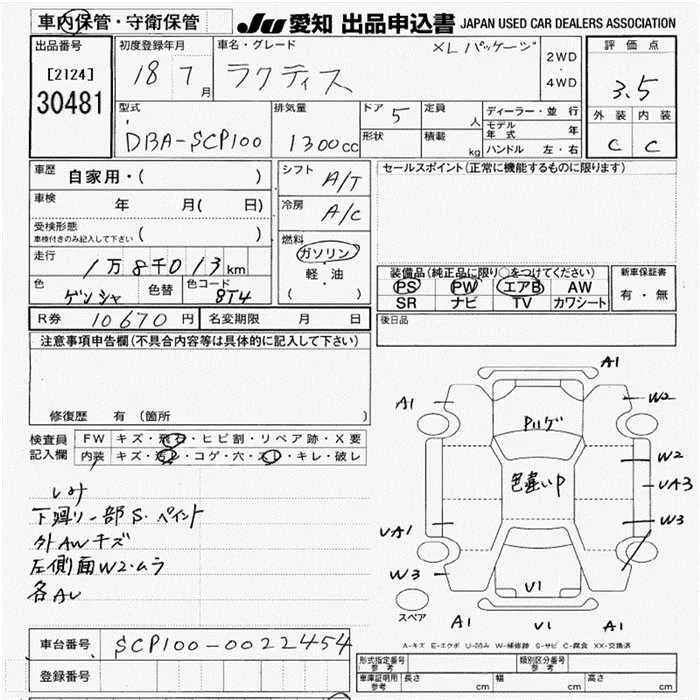 車内保管・守衛保管 JU 愛知 出品申込書 JAPAN USED CAR DEALERS ASSOCIATION
出品番号 [2124] 30481
初度登録年月 18 7月
車名・グレード ラクティス XLパッケージ
2WD・4WD
評価点 3.5
外装 C 内装 C
型式 DBA-SCP100
排気量 1300cc
ドア 5
形状
定員 人
積載 kg
ディーラー・並行
モデル年式 年
ハンドル 左・右
車歴 自家用・( )
車検 年 月( 日)
受検形態 車検付きのみ記入して下さい ( )
走行 1万8千013km
色 ゲンシャ 色替 色コード 8T4
シフト A/T
冷房 A/C
燃料 ガソリン・軽油 ( )
セールスポイント(正常に機能するものに限ります)
装備品(純正品に限り○をつけてください)
PS PW エアB AW
SR ナビ TV カワシート
新車保証書 有・無
R券 10670円 名変期限 月 日
後日品
注意事項申告欄(不具合内容等は具体的に記入して下さい)
修復歴 有(箇所 )
検査員記入欄
FW キズ・飛石・ヒビ割・リペア跡・X要
内装 キズ・汚れ・コゲ・穴・スレ・キレ・破レ
シミ
下廻り一部S・ペイント
外AWキズ
左側面W2・ムラ
各AU
A1
A1 W2
Pハゲ
W2
色違いP
UA3
UA1 W3
W3
U1
スペア
A1 U1 A1
A-キズ E-エクボ U-凹み W-補修跡 S-サビ C-腐食 XX-交換済
車台番号 SCP100-0022454
登録番号
形式指定番号 参考 類別区分番号 参考
車庫証明用 参考 長さ cm 幅 cm 高さ cm